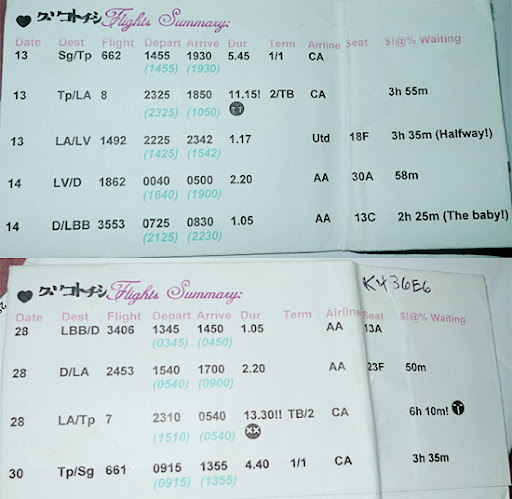 クソコトチシ Flights Summary:
Date Dest Flight Depart Arrive Dur Term Airline Seat $!@% Waiting
13 Sg/Tp 662 1455 1930 5.45 1/1 CA
(1455) (1930)
13 Tp/LA 8 2325 1850 11.15! 2/TB CA 3h 55m
(2325) (1050) TT
13 LA/LV 1492 2225 2342 1.17 Utd 18F 3h 35m (Halfway!)
(1425) (1542)
14 LV/D 1862 0040 0500 2.20 AA 30A 58m
(1640) (1900)
14 D/LBB 3553 0725 0830 1.05 AA 13C 2h 25m (The baby!)
(2125) (2230)
クソコトチシ Flights Summary:
KY36E6
Date Dest Flight Depart Arrive Dur Term Airline Seat $!@% Waiting
28 LBB/D 3406 1345 1450 1.05 AA 13A
(0345) (0450)
28 D/LA 2453 1540 1700 2.20 AA 23F 50m
(0540) (0900)
28 LA/Tp 7 2310 0540 13.30!! TB/2 CA 6h 10m!
(1510) (0540) xx
30 Tp/Sg 661 0915 1355 4.40 1/1 CA 3h 35m
(0915) (1355)